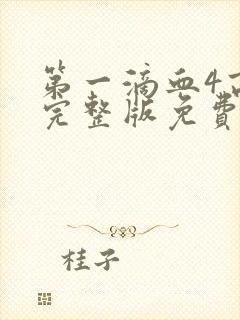 第一滴血4
完整版免費
桂子